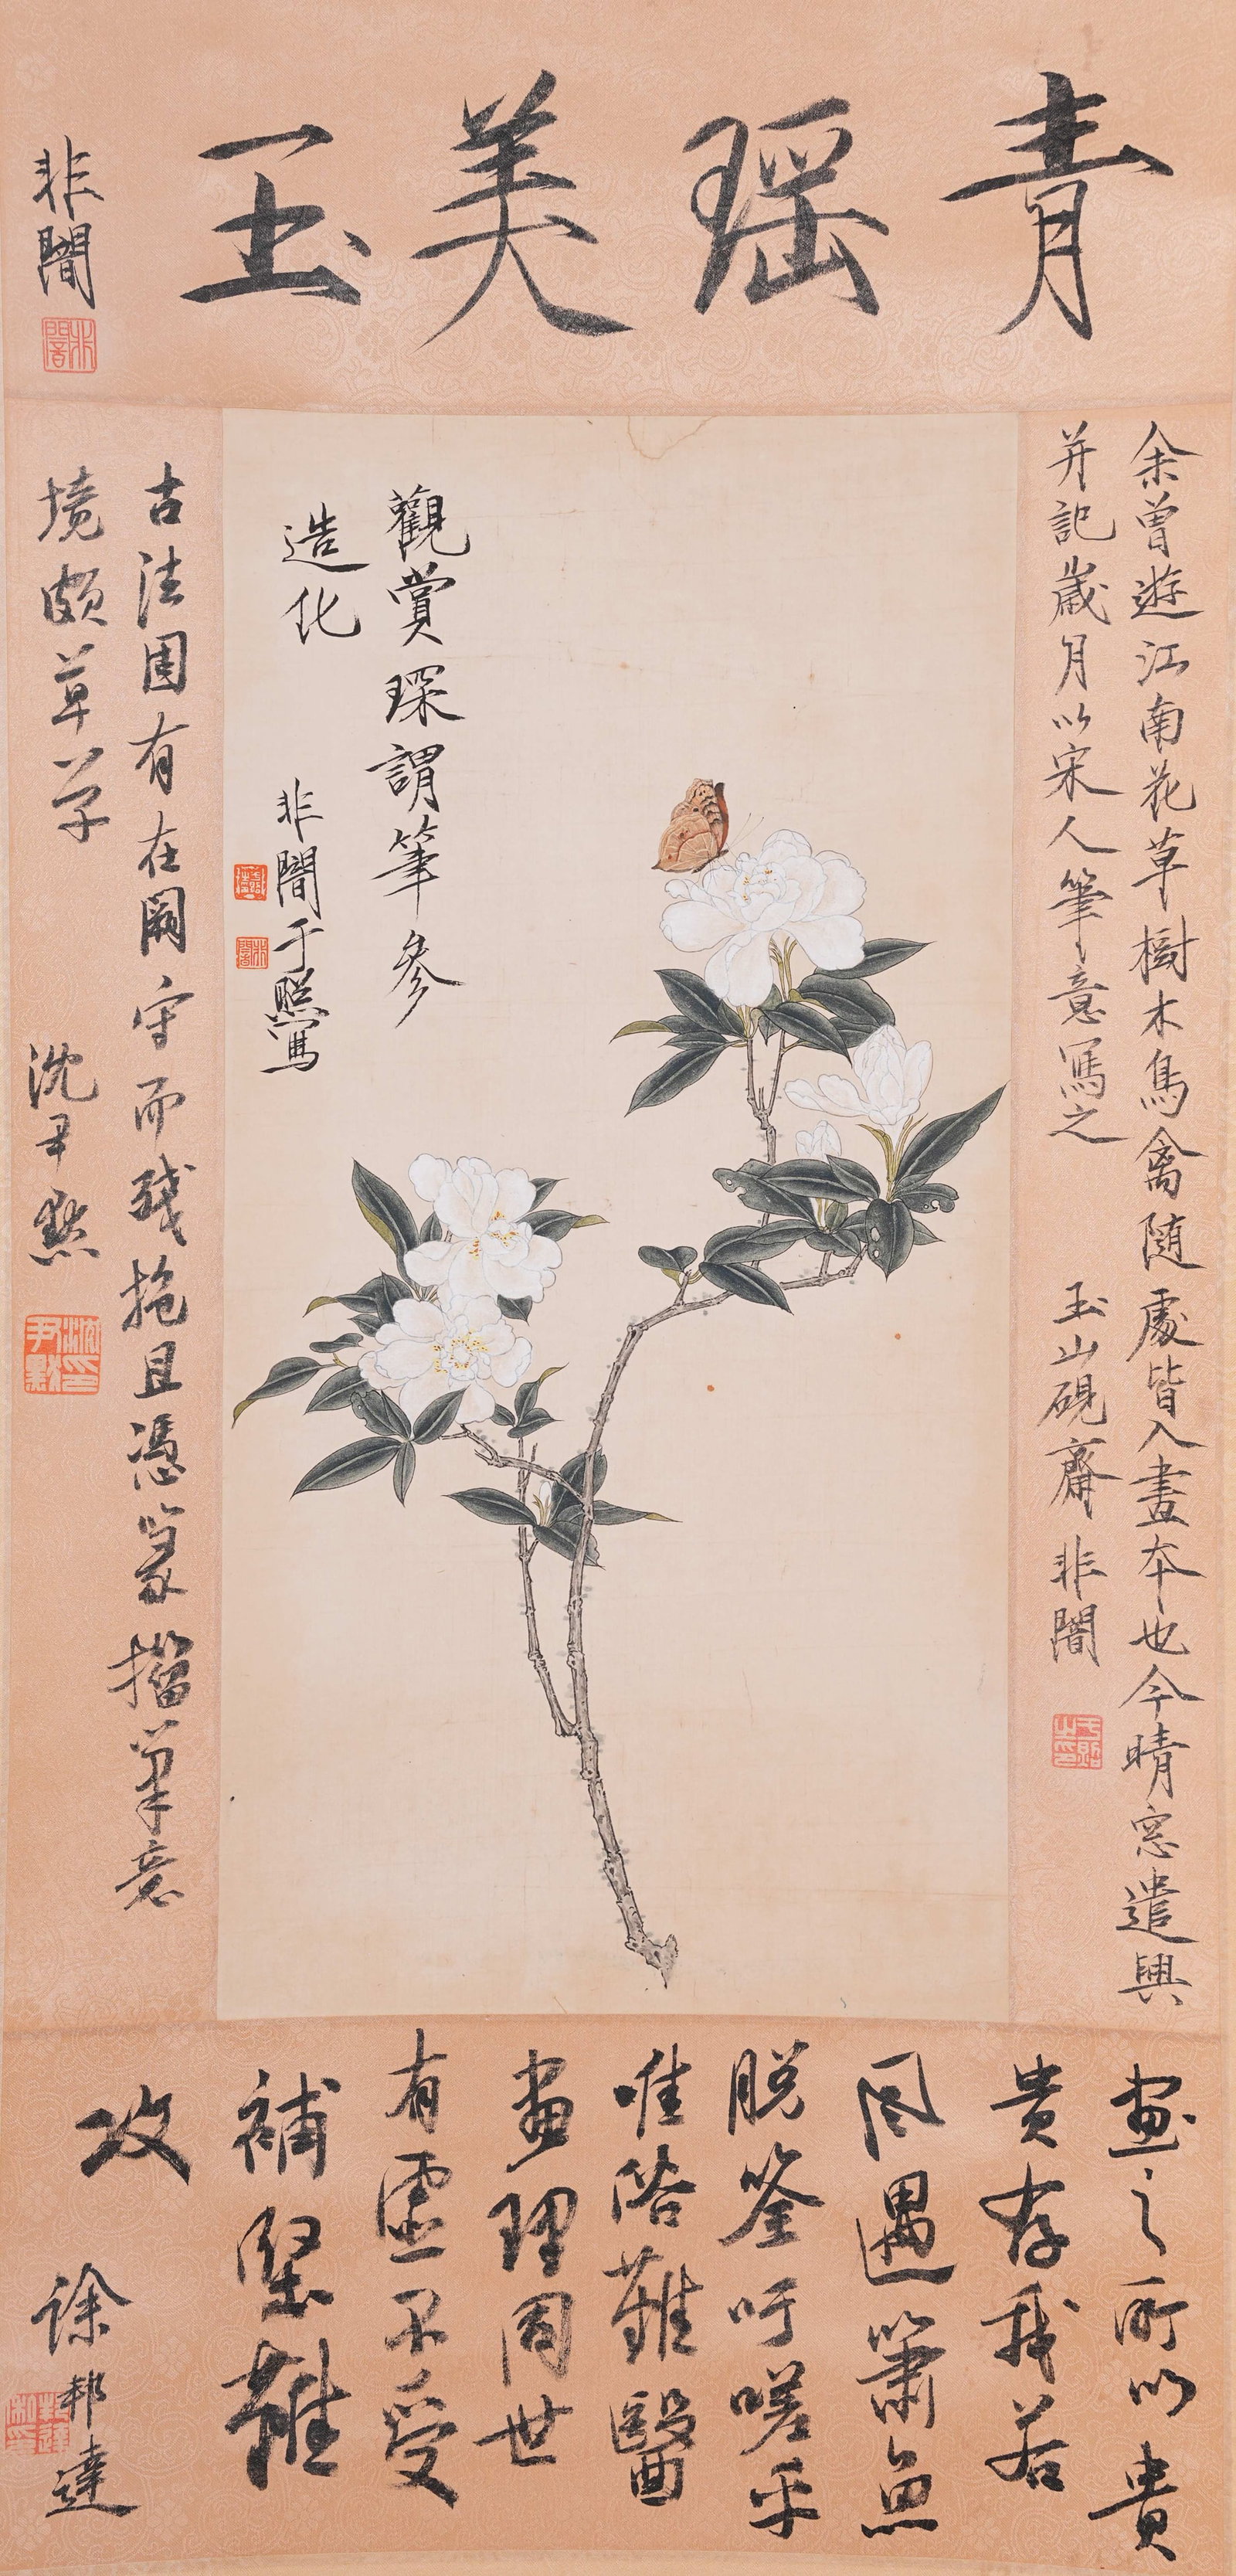 青瑶美玉
非闇
余曾遊江南花草樹木鳥禽随處皆入畫本也今晴窓遣興
并記歲月以宋人筆意寫之
玉山硯齋 非闇
觀賞琛謂筆參
造化
非闇于照寫
古法固有在闕守而殘抱且憑篆摺筆意
境頗草草
沈尹默
畫之所以貴
貴存我若
風遇簫魚
脫筌吁嗟乎
唯俗難醫
畫理固世
有虛不受
補堅難
攻
徐邦達